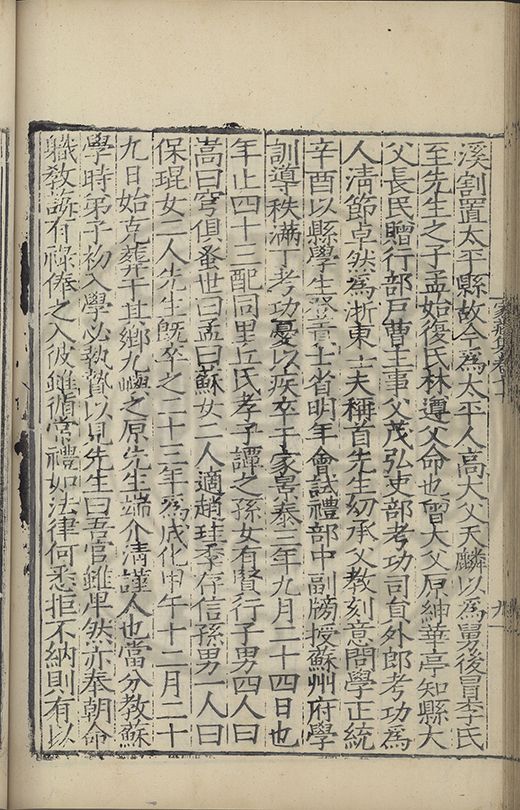 溪割置太平縣故今爲太平人高大父天麟以爲舅後冒李氏
至先生之子孟始復氏林遵父命也曾大父原紳華亭知縣大
父長民贈行部戶曹主事父茂弘吏部考功司員外郎考功爲
人清節卓然爲浙東士夫稱首先生幼承父教刻意問學正統
辛酉以縣學生登貢士省明年會試禮部中副牓授蘇州府學
訓導秩滿丁考功憂以疾卒于家景泰三年九月二十四日也
年止四十三配同里丘氏孝子譚之孫女有賢行子男四人曰
嵩曰穹俱蚤世曰孟曰蘇女二人適趙珪李存信孫男一人曰
保琨女二人先生旣卒之二十三年爲成化甲午十二月二十
九日始克葬于其鄉九峴之原先生端介清謹人也當分教蘇
學時弟子初入學必執贄以見先生曰吾官雖卑然亦奉朝命
職教訴有祿俸之入彼雖循常禮如法律何悉拒不納則有以